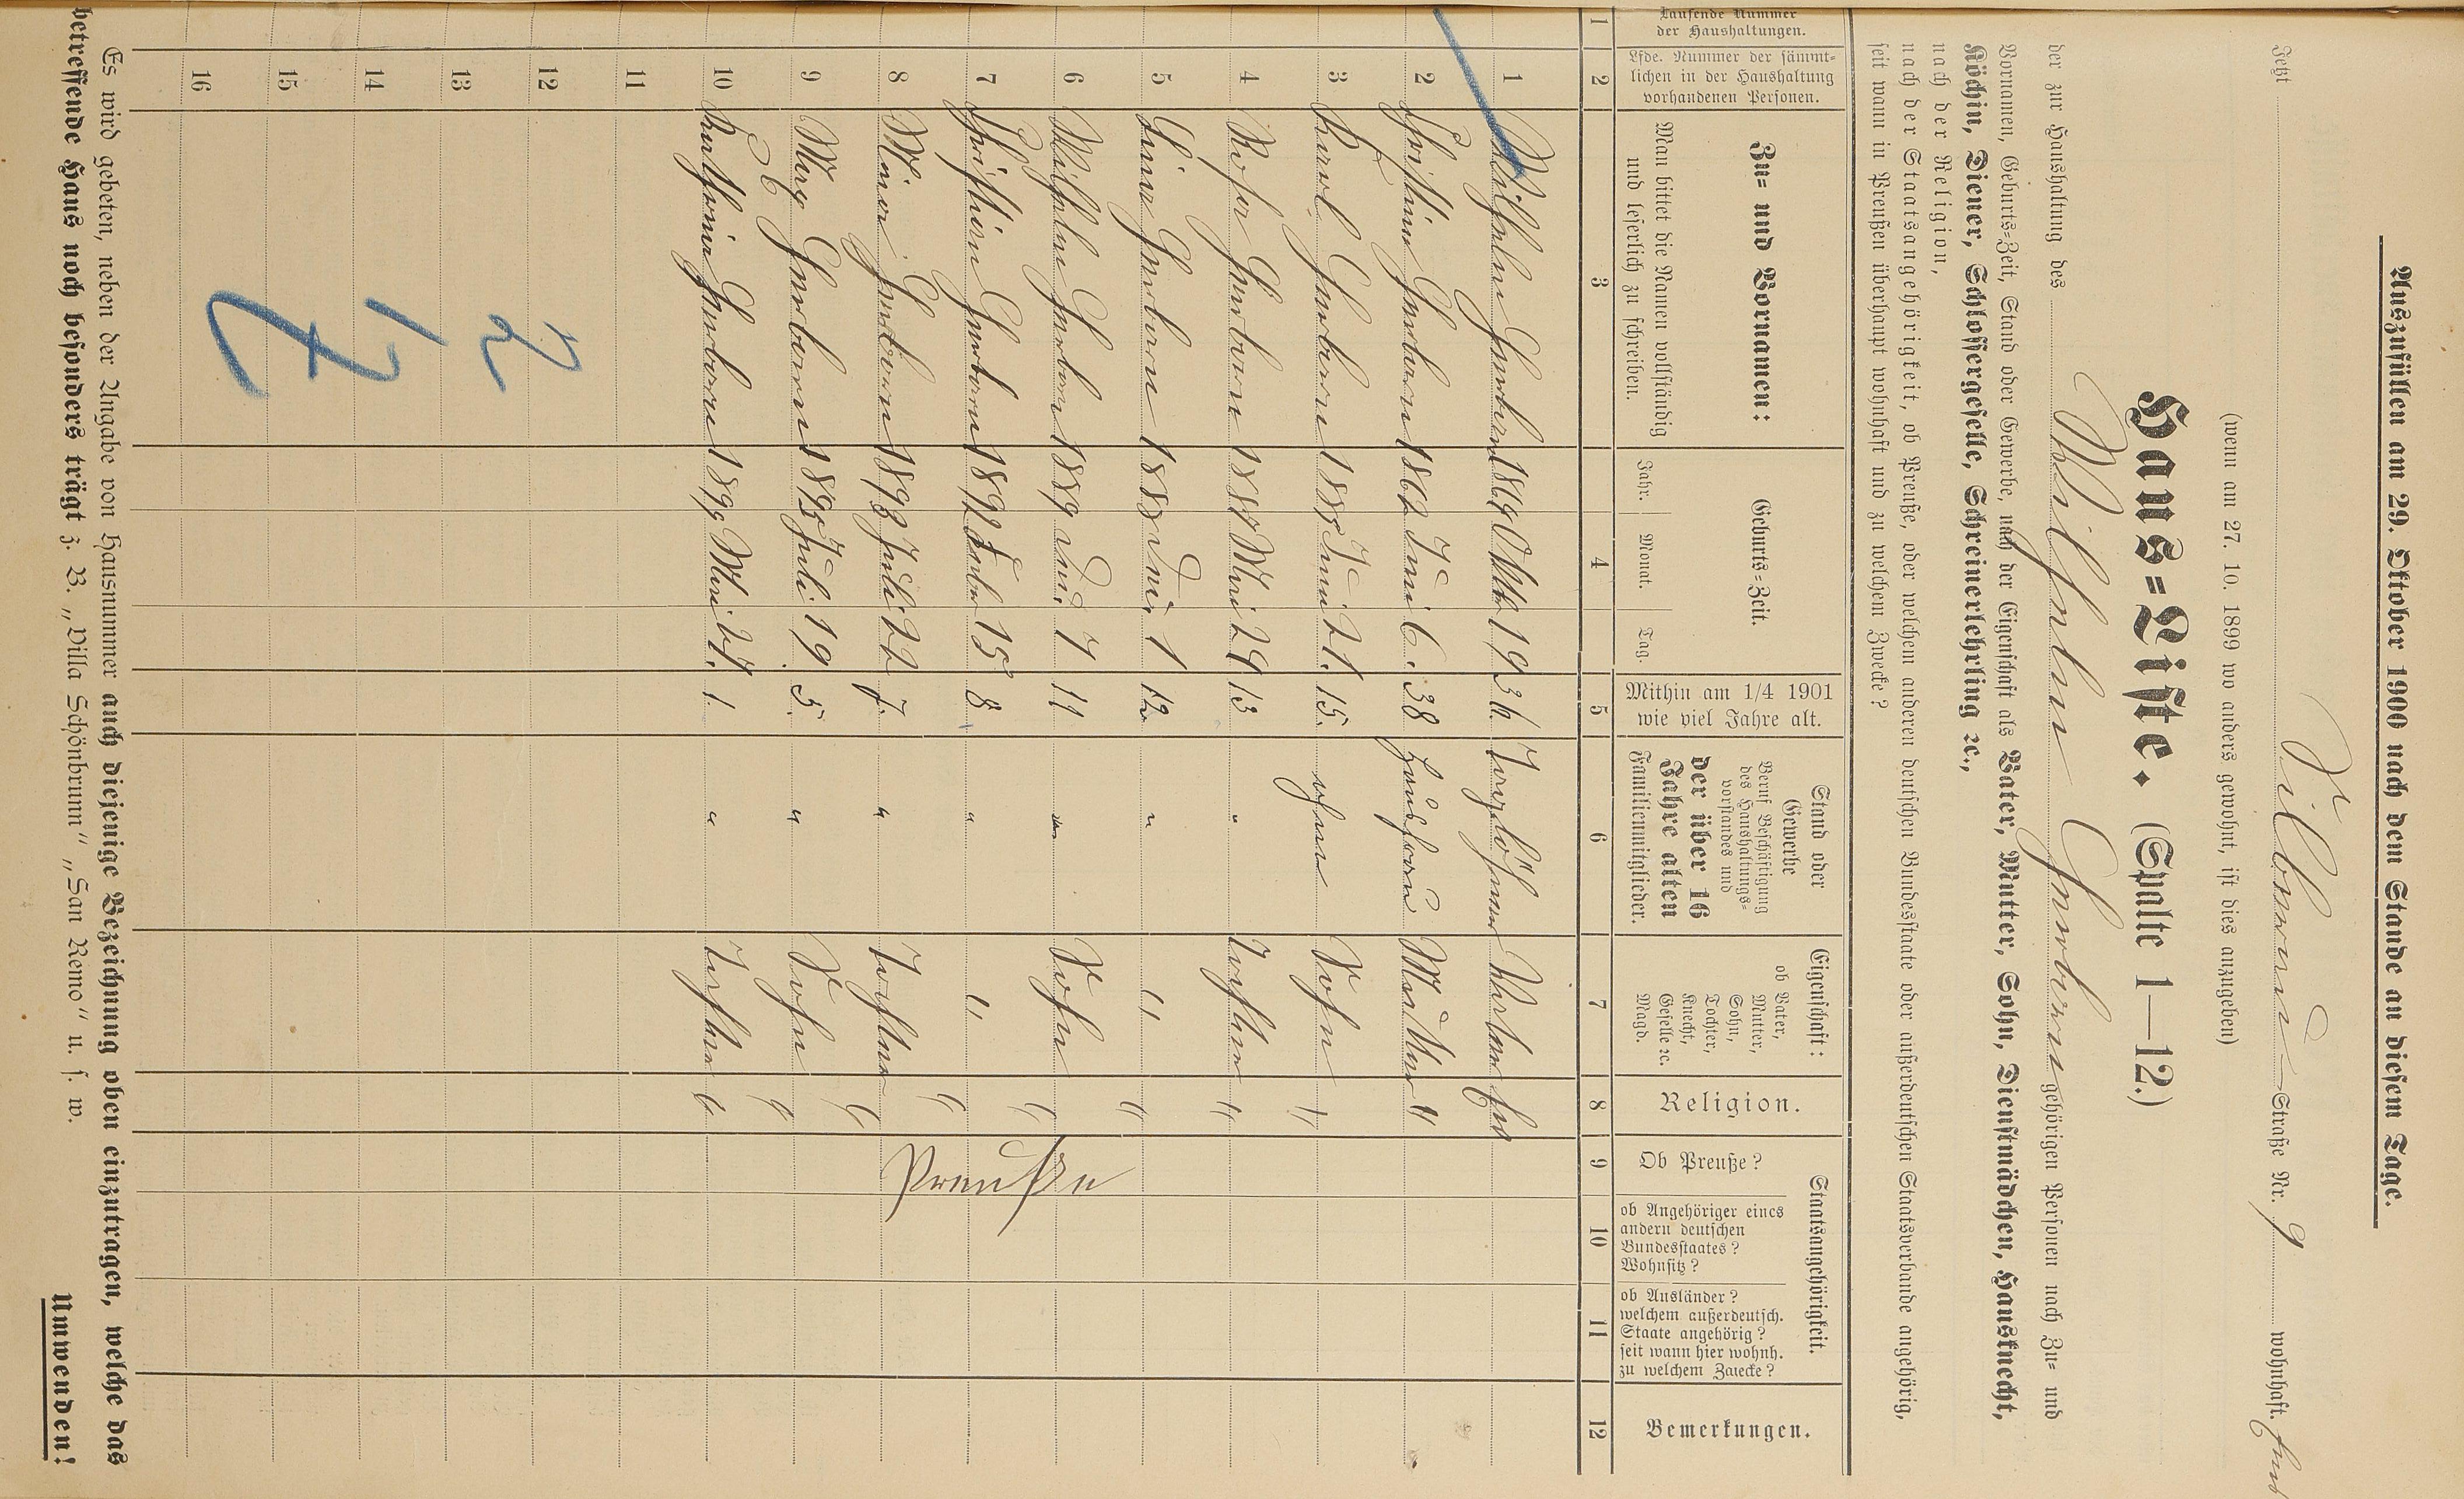 Auszufüllen am 29. Oktober 1900 nach dem Stande an diesem Tage.
Jetzt Straße Nr. 9 wohnhaft.
(wenn am 27. 10. 1899 wo anders gewohnt, ist dies anzugeben)
Haus-Liste. (Spalte 1—12.)
der zur Haushaltung des Wilhelm gehörigen Personen nach Zu- und
Vornamen, Geburts-Zeit, Stand oder Gewerbe, nach der Eigenschaft als Vater, Mutter, Sohn, Dienstmädchen, Hausknecht,
Köchin, Diener, Schlossergeselle, Schreinerlehrling ꝛc.,
nach der Religion,
nach der Staatsangehörigkeit, ob Preuße, oder welchem anderen deutschen Bundesstaate oder außerdeutschen Staatsverbande angehörig,
seit wann in Preußen überhaupt wohnhaft und zu welchem Zwecke?
Laufende Nummer der Haushaltungen.
Lfde. Nummer der sämmt-
lichen in der Haushaltung
vorhandenen Personen.
Zu- und Vornamen:
Man bittet die Namen vollständig
und leserlich zu schreiben.
Geburts-Zeit.
Jahr. Monat. Tag.
Mithin am 1/4 1901
wie viel Jahre alt.
Stand oder
Gewerbe
Beruf Beschäftigung
des Haushaltungs-
vorstandes und
der über 16
Jahre alten
Familienmitglieder.
Eigenschaft:
ob Vater,
Mutter,
Sohn,
Tochter,
Knecht,
Geselle ꝛc.
Magd.
Religion.
Staatsangehörigkeit.
Ob Preuße?
ob Angehöriger eines
andern deutschen
Bundesstaates?
Wohnsitz?
ob Ausländer?
welchem außerdeutsch.
Staate angehörig?
seit wann hier wohnh.
zu welchem Zwecke?
Bemerkungen.
1 2 3 4 5 6 7 8 9 10 11 12
1 Wilhelm 1864 Oktbr 19 36. Taglöhner Vater
2 1862 Juni 6. 38 Hausfrau Mutter "
3 Karl 1885 Juni 21. 15. ohne Sohn "
4 Rosa 1887 Mai 29 13 " Tochter "
5 Lina 1888 1 12. " " "
6 Wilhelm 1889 7 11 " Sohn "
7 1892 15 8 " " "
8 Mina 1893 Juli 22 7. " Tochter "
9 Max 1895 Juli 19. 5. " Sohn "
10 Katharina 1899 Mai 27. 1. " Tochter "
Preuße
11
12
13
14
15
16
2
1
7
Es wird gebeten, neben der Angabe von Hausnummer auch diejenige Bezeichnung oben einzutragen, welche das
betreffende Haus noch besonders trägt z. B. „Villa Schönbrunn" „San Remo" u. s. w.
Umwenden!